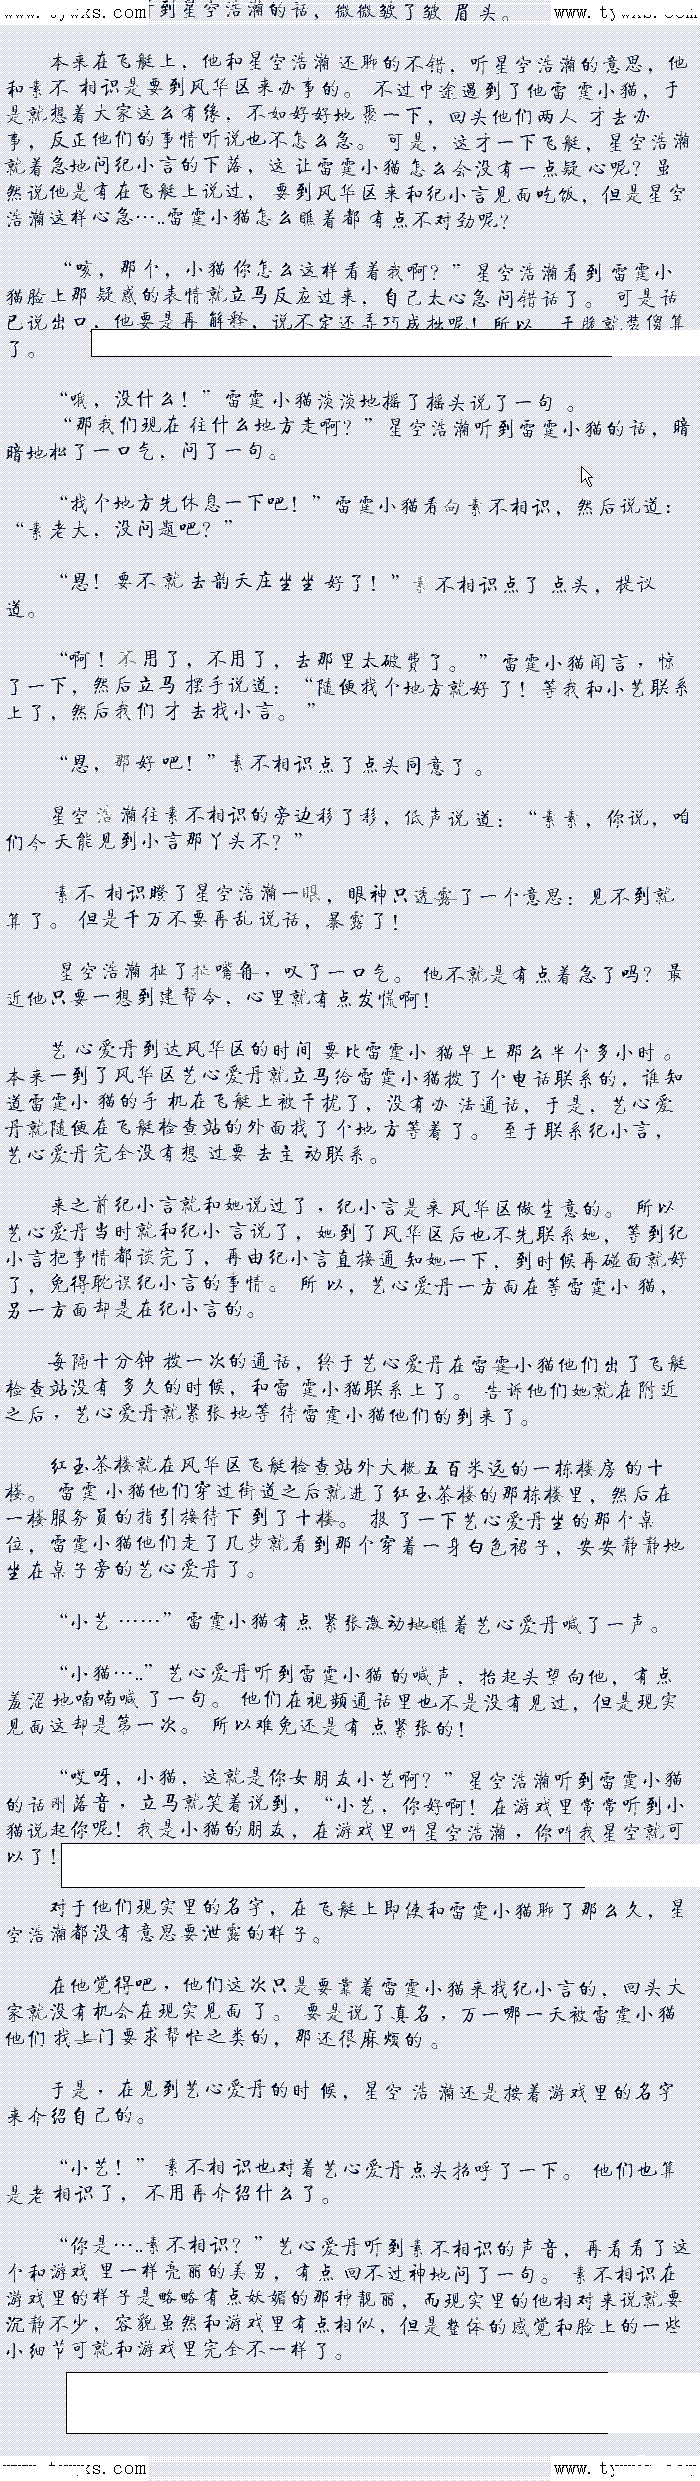 到星空浩瀚的话，微微皱了皱 眉 头。 www.tywxs.com
本来在飞艇上，他和星空浩瀚 还聊的不错，听星空浩瀚的意思，他
和素不 相识是要到风华区来办事的。 不过中途遇到了他雷 霆小猫，于
是就想着大家这么有缘，不如好好地 聚一下，回头他们两人 才去办
事，反正他们的事情听说也不怎么急。 可是，这才一下飞艇，星空浩瀚
就着急地问纪小言的下落，这 让雷霆小猫 怎么会没有一点疑 心呢？虽
然说他是有在飞艇上说过， 要到风华区来和纪小言见面吃饭，但是星空
浩瀚这样心急…..雷霆小猫怎么瞧着都 有点不对劲呢？
“咳，那个，小猫 你怎么这样看着我啊？” 星空浩瀚看到 雷霆小
猫脸上那 疑惑的表情就立马反应过来，自己太心急 问错话了。 可是话
已说出口，他要是再 解释，说不定还弄巧成拙呢！所以，干脆就装傻算
了。
“哦，没什么！” 雷霆 小猫淡淡地摇了摇头说了一句 。
“那我们现在 往什么地方走啊？” 星空浩瀚听到雷霆小猫的话，暗
暗地松了一口气，问了一句。
“找个地方先休息一下吧！” 雷霆小猫看向素不相识，然后说道：
“素老大，没问题吧？”
“恩！要不 就 去韵天庄坐坐 好了！” 素 不相识点了 点头，提议
道。
“啊！不用了，不用了，去那里太破费了。 ” 雷霆小猫闻言，惊
了一下，然后立马 摆手说道：“随便找个地方就好 了！等我和小艺联系
上了，然后我们 才 去找小言。”
“恩，那好 吧！” 素不相识点了点头同意了 。
星空 浩 瀚往素不相识的旁边移了移，低声说 道：“素素，你说，咱
们今 天能见到小言那丫头不？”
素不 相识瞪了星空浩瀚一眼，眼神只透露了一个意思：见不到就
算了。 但是千万不要再乱 说话，暴露了！
星空浩瀚 扯了扯 嘴角，叹了一口气。 他不就是有点着急了吗？最
近他只要一想到建帮令，心里就有点发慌啊！
艺 心爱丹到达风华区的时间 要比雷霆小 猫早上 那么半 个多小时 。
本来一到了风华区艺心爱丹就立马给雷霆小猫拨了个电话联系的，谁知
道雷霆小 猫的手 机在飞艇上被干扰了，没有办 法通话，于是，艺心爱
丹就随便在飞艇检查站的外面找了个地 方等着了。 至于联系纪小言，
艺心爱丹完全没有想 过要 去主 动联系。
来之前纪小言就和她说过了，纪小言是来 风华区做生意的。 所以
艺心爱丹当时就和纪小 言说了，她到了风华区后也不先联系她，等到纪
小言把事情都谈完了，再由纪小言直接通 知她一下，到时候再碰面就好
了，免得耽误纪小言的事情。 所 以，艺心爱丹一方面在 等雷霆小 猫，
另一方面却是在纪小言的。
每隔十分钟 拨一次的通话，终于艺心爱丹在雷霆小猫他们出了飞艇
检查站没有 多久的时候，和雷 霆小猫联系上了。 告诉他们她就在附近
之后，艺心爱丹就紧张地等 待雷霆小猫他们的到来了。
红玉茶楼就在风华区飞艇检查站外大概五百米远的一栋楼房 的十
楼。 雷霆 小猫他们穿过街道之后就进了红玉茶楼的那栋楼里，然后在
一楼服务员的指引接待下 到了十楼。 报了一下艺心爱丹坐的那个桌
位，雷霆小猫他们走了几步就看到那个穿着一身白色裙子，安安静静地
坐在桌子旁的艺心爱丹了。
“小艺 ……” 雷霆小猫有点 紧张激动地瞧着艺心爱丹喊了一声。
“小猫…..” 艺心爱丹听到雷霆小猫 的喊声，抬起头望向他，有点
羞涩 地喃喃喊 了一句。 他们在视频通话里也不是没有见过，但是现实
见面这却是第一次。 所以难免还是有 点紧张的！
“哎呀，小猫，这就是你女朋友小艺啊？” 星空浩瀚听到雷霆小猫
的话刚落音，立马就笑着说到，“小艺，你好啊！在游戏里常常听到小
猫说起你呢！我是小猫的朋友，在游戏里叫星空浩瀚，你叫我星空就可
以了！
对于他们现实里的名字，在 飞艇上即使和雷霆小猫聊了那么久，星
空浩瀚都没有意思要泄露的样子。
在他觉得吧，他们这次只是要靠着雷霆小猫来找纪小言的，回头大
家就没有机会在现实见面 了。 要是说了真名，万一哪一天被雷霆小猫
他们 找上门要求帮忙之类的，那还很麻烦的 。
于是，在见到艺心爱丹的时 候，星空 浩 瀚还是按着游戏里的名字
来介绍自己的。
“小艺！” 素不相 识也对着艺心爱丹点头招呼了一下。 他们也算
是老 相识了， 不用再介绍什么了。
“你是…..素不相识？” 艺心爱丹听到素不相识的声音，再看看了这
个和游戏 里一样亮丽的美男，有点 回不过神地问了一句。 素不相识在
游戏里的样子是略略有点妖媚的那种靓丽，而现实里的他相对来说就要
沉静不少，容貌虽然和游戏里有点相似，但是整体的感觉和脸上的一些
小细节可就和游戏里完全不一样了。
www.tywxs.com